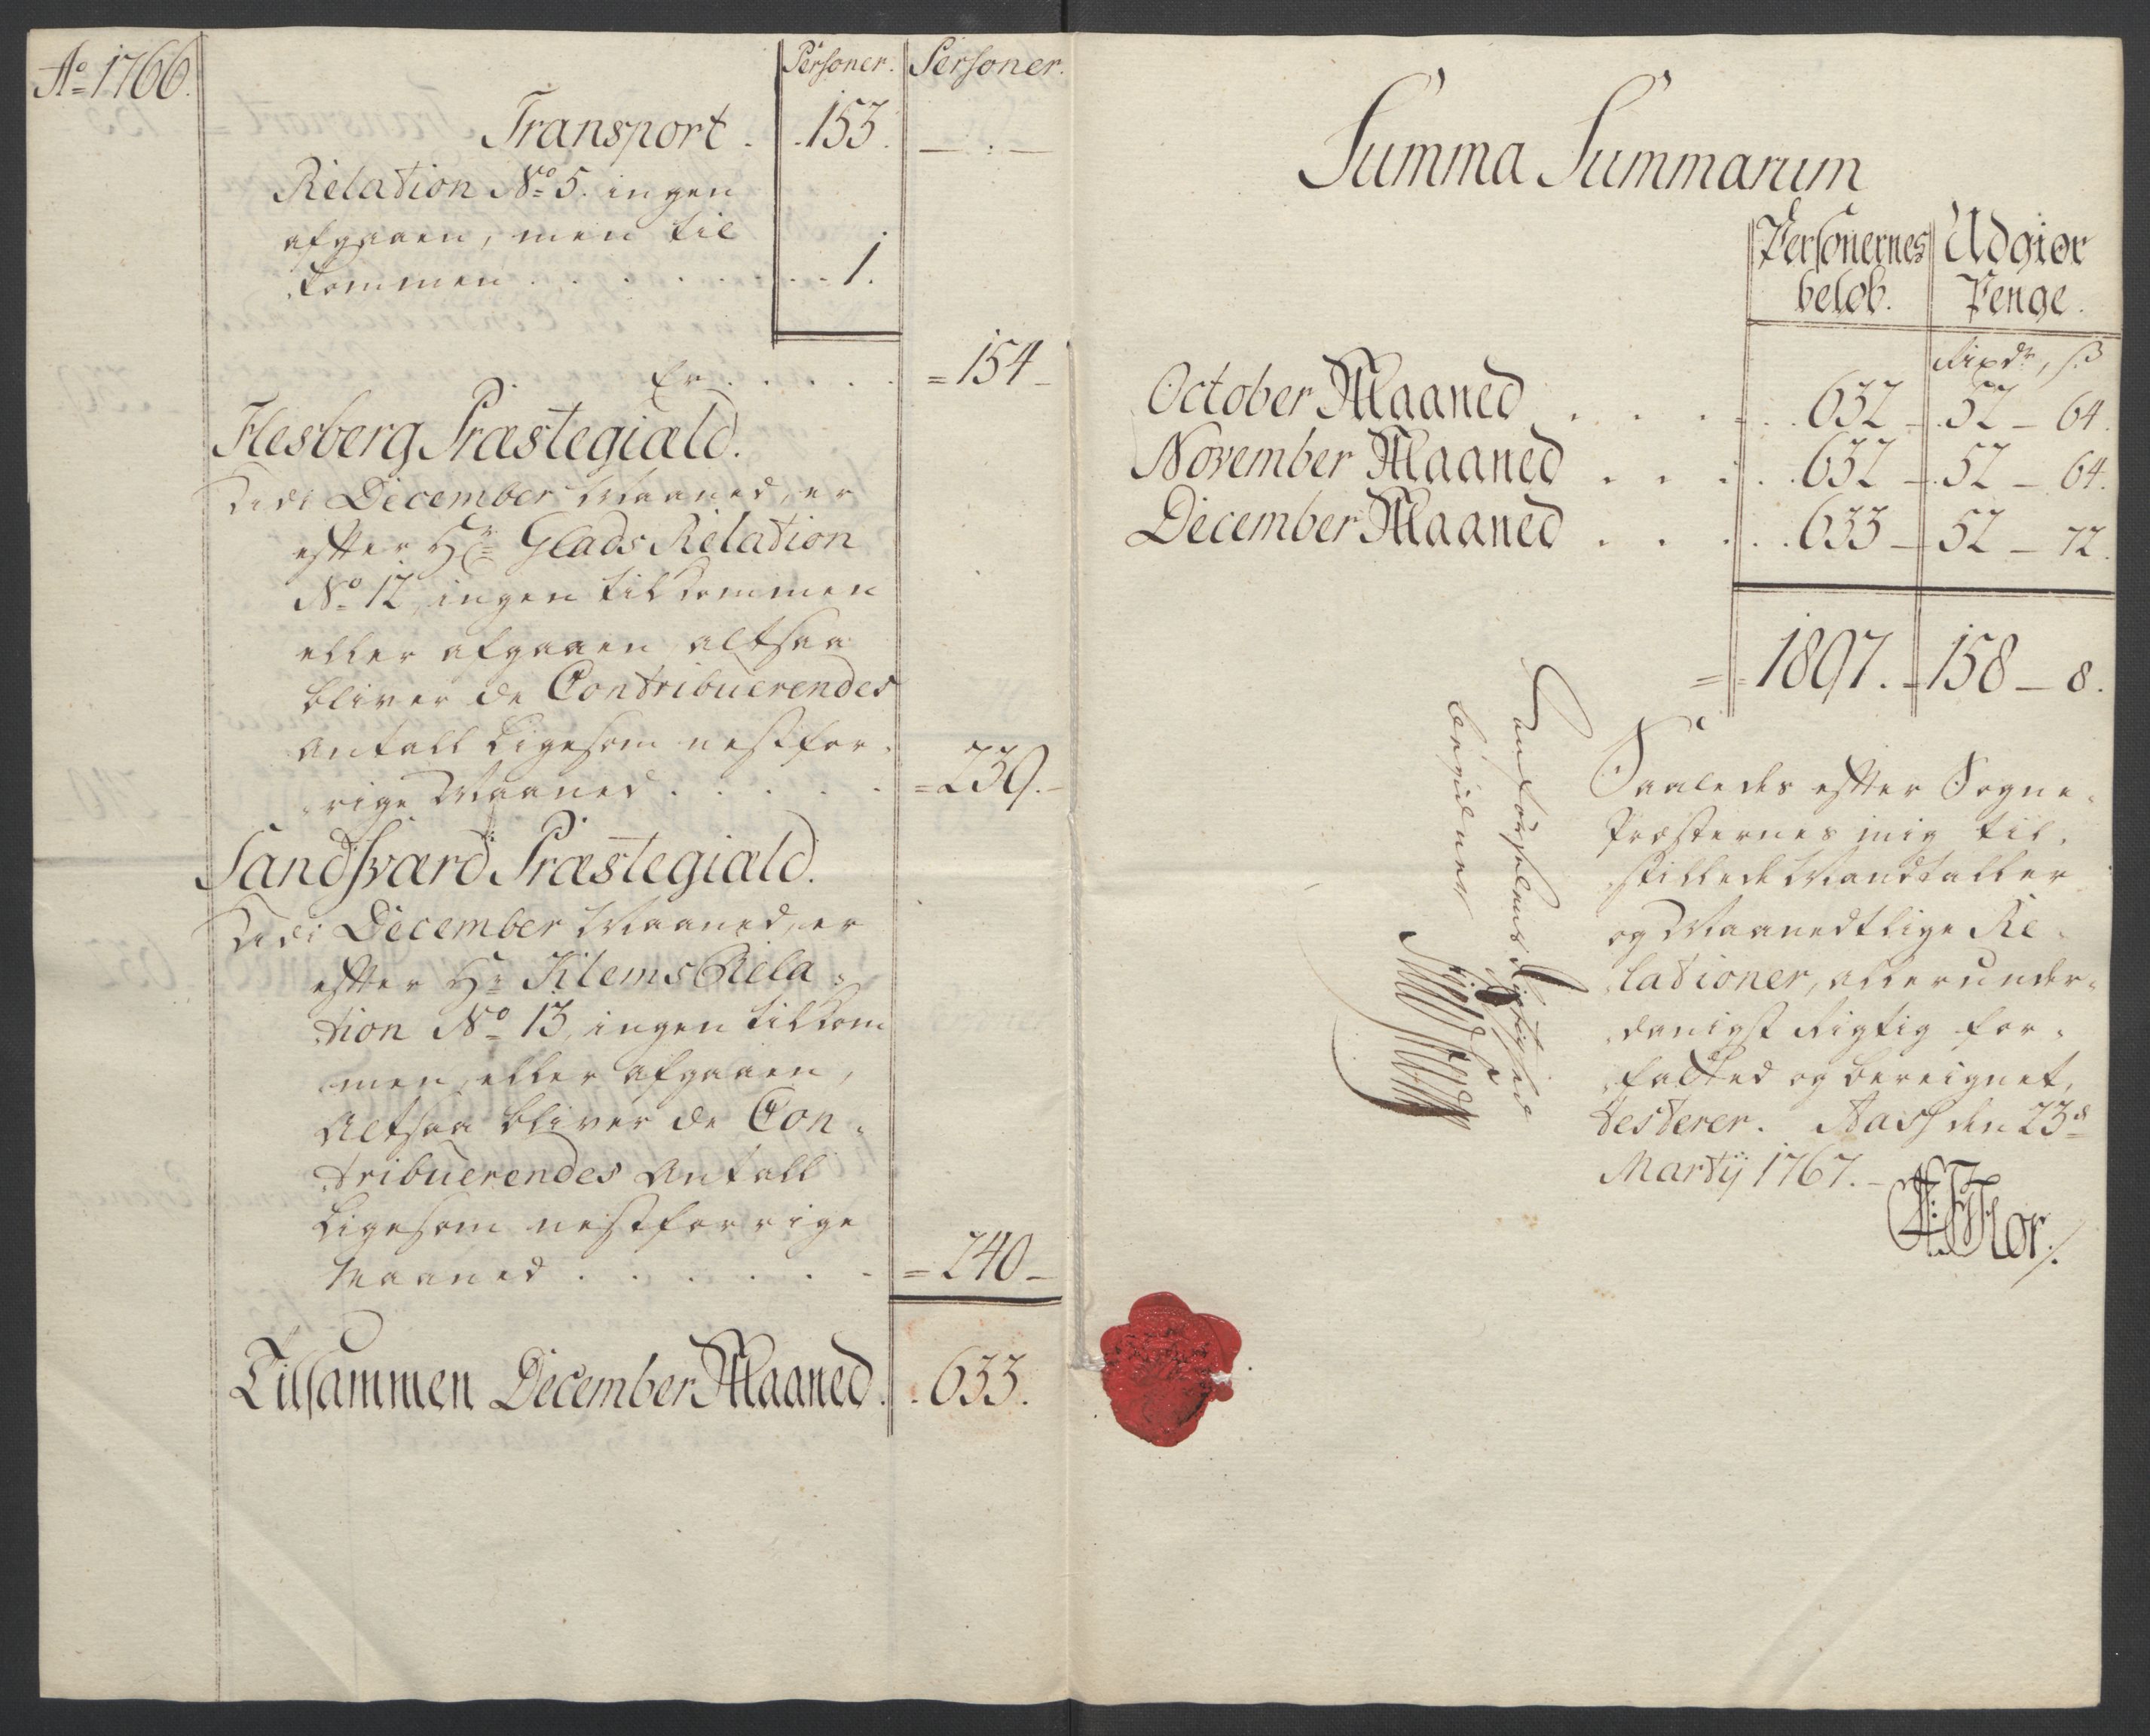 Ao 1766.
Personer. Personer.
Transport . . 153. — . —
Relation No 5. ingen
afgaaen, men til
kommen . . . . . . . 1.
Er . . . . . = 154 –
Flesberg Præstegiæld.
Udi December Maaned, er
efter Hr Glads Relation
No 12, ingen tilkommen
eller afgaaen altsaa
bliver de Contribuerendes
Antall ligesom nestfor-
rige Maaned . . . . . = 239. –
Sandsværd Præstegiæld.
Udi December Maaned, er
efter Hr Tilems Rela-
tion No 13, ingen tilkom
men, eller afgaaen,
Altsaa bliver de Con-
tribuerendes Antall
ligesom nestforrige
Maaned . . . . . . = 240 –
Tilsammen December Maaned. . 633.
Summa Summarum
Personernes Udgiør
beløb. Penge.
Rixdr, ß
October Maaned . . . . . 632 – 52 – 64.
November Maaned . . . . . 632 – 52 – 64.
December Maaned . . . . . 633 – 52 – 72.
= 1897. – 158 – 8.
Saaledes efter Sogne-
Præsternes mig til-
stillede Mandtaller
og Maanedtlige Re-
lationer, allerunder-
danigst Rigtig for-
fatted og bereignet,
testerer. Aas den 23de
Martij 1767. –
Flor ./.
Rigtighed
bevidner